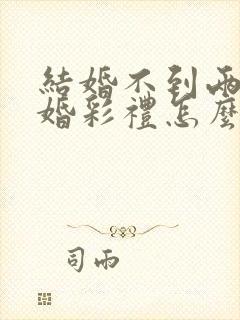 結婚不到兩
婚彩禮怎麼
司雨